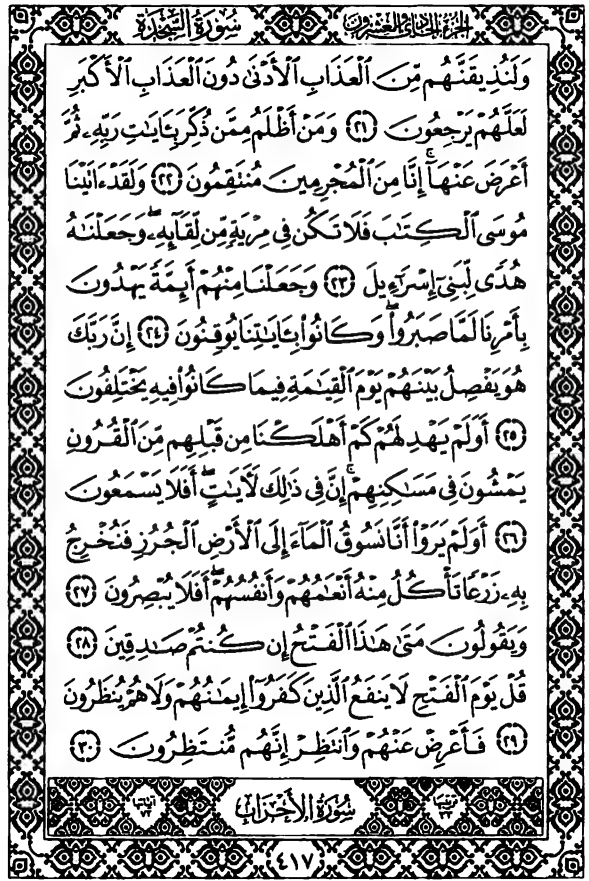 سُورَةُ السَّجْدَةِ الجزء الحادي والعشرون
وَلَنُذِيقَنَّهُم مِّنَ ٱلْعَذَابِ ٱلْأَدْنَىٰ دُونَ ٱلْعَذَابِ ٱلْأَكْبَرِ
لَعَلَّهُمْ يَرْجِعُونَ ﴿٢١﴾ وَمَنْ أَظْلَمُ مِمَّن ذُكِّرَ بِـَٔايَٰتِ رَبِّهِۦ ثُمَّ
أَعْرَضَ عَنْهَآ ۚ إِنَّا مِنَ ٱلْمُجْرِمِينَ مُنتَقِمُونَ ﴿٢٢﴾ وَلَقَدْ ءَاتَيْنَا
مُوسَى ٱلْكِتَٰبَ فَلَا تَكُن فِى مِرْيَةٍ مِّن لِّقَآئِهِۦ ۖ وَجَعَلْنَٰهُ
هُدًى لِّبَنِىٓ إِسْرَٰٓءِيلَ ﴿٢٣﴾ وَجَعَلْنَا مِنْهُمْ أَئِمَّةً يَهْدُونَ
بِأَمْرِنَا لَمَّا صَبَرُوا۟ ۖ وَكَانُوا۟ بِـَٔايَٰتِنَا يُوقِنُونَ ﴿٢٤﴾ إِنَّ رَبَّكَ
هُوَ يَفْصِلُ بَيْنَهُمْ يَوْمَ ٱلْقِيَٰمَةِ فِيمَا كَانُوا۟ فِيهِ يَخْتَلِفُونَ
﴿٢٥﴾ أَوَلَمْ يَهْدِ لَهُمْ كَمْ أَهْلَكْنَا مِن قَبْلِهِم مِّنَ ٱلْقُرُونِ
يَمْشُونَ فِى مَسَٰكِنِهِمْ ۚ إِنَّ فِى ذَٰلِكَ لَءَايَٰتٍ ۖ أَفَلَا يَسْمَعُونَ
﴿٢٦﴾ أَوَلَمْ يَرَوْا۟ أَنَّا نَسُوقُ ٱلْمَآءَ إِلَى ٱلْأَرْضِ ٱلْجُرُزِ فَنُخْرِجُ
بِهِۦ زَرْعًا تَأْكُلُ مِنْهُ أَنْعَٰمُهُمْ وَأَنفُسُهُمْ ۖ أَفَلَا يُبْصِرُونَ ﴿٢٧﴾
وَيَقُولُونَ مَتَىٰ هَٰذَا ٱلْفَتْحُ إِن كُنتُمْ صَٰدِقِينَ ﴿٢٨﴾
قُلْ يَوْمَ ٱلْفَتْحِ لَا يَنفَعُ ٱلَّذِينَ كَفَرُوٓا۟ إِيمَٰنُهُمْ وَلَا هُمْ يُنظَرُونَ
﴿٢٩﴾ فَأَعْرِضْ عَنْهُمْ وَٱنتَظِرْ إِنَّهُم مُّنتَظِرُونَ ﴿٣٠﴾
ترتيبها ٣٣ سُورَةُ الْأَحْزَابِ آياتها ٧٣
٤١٧